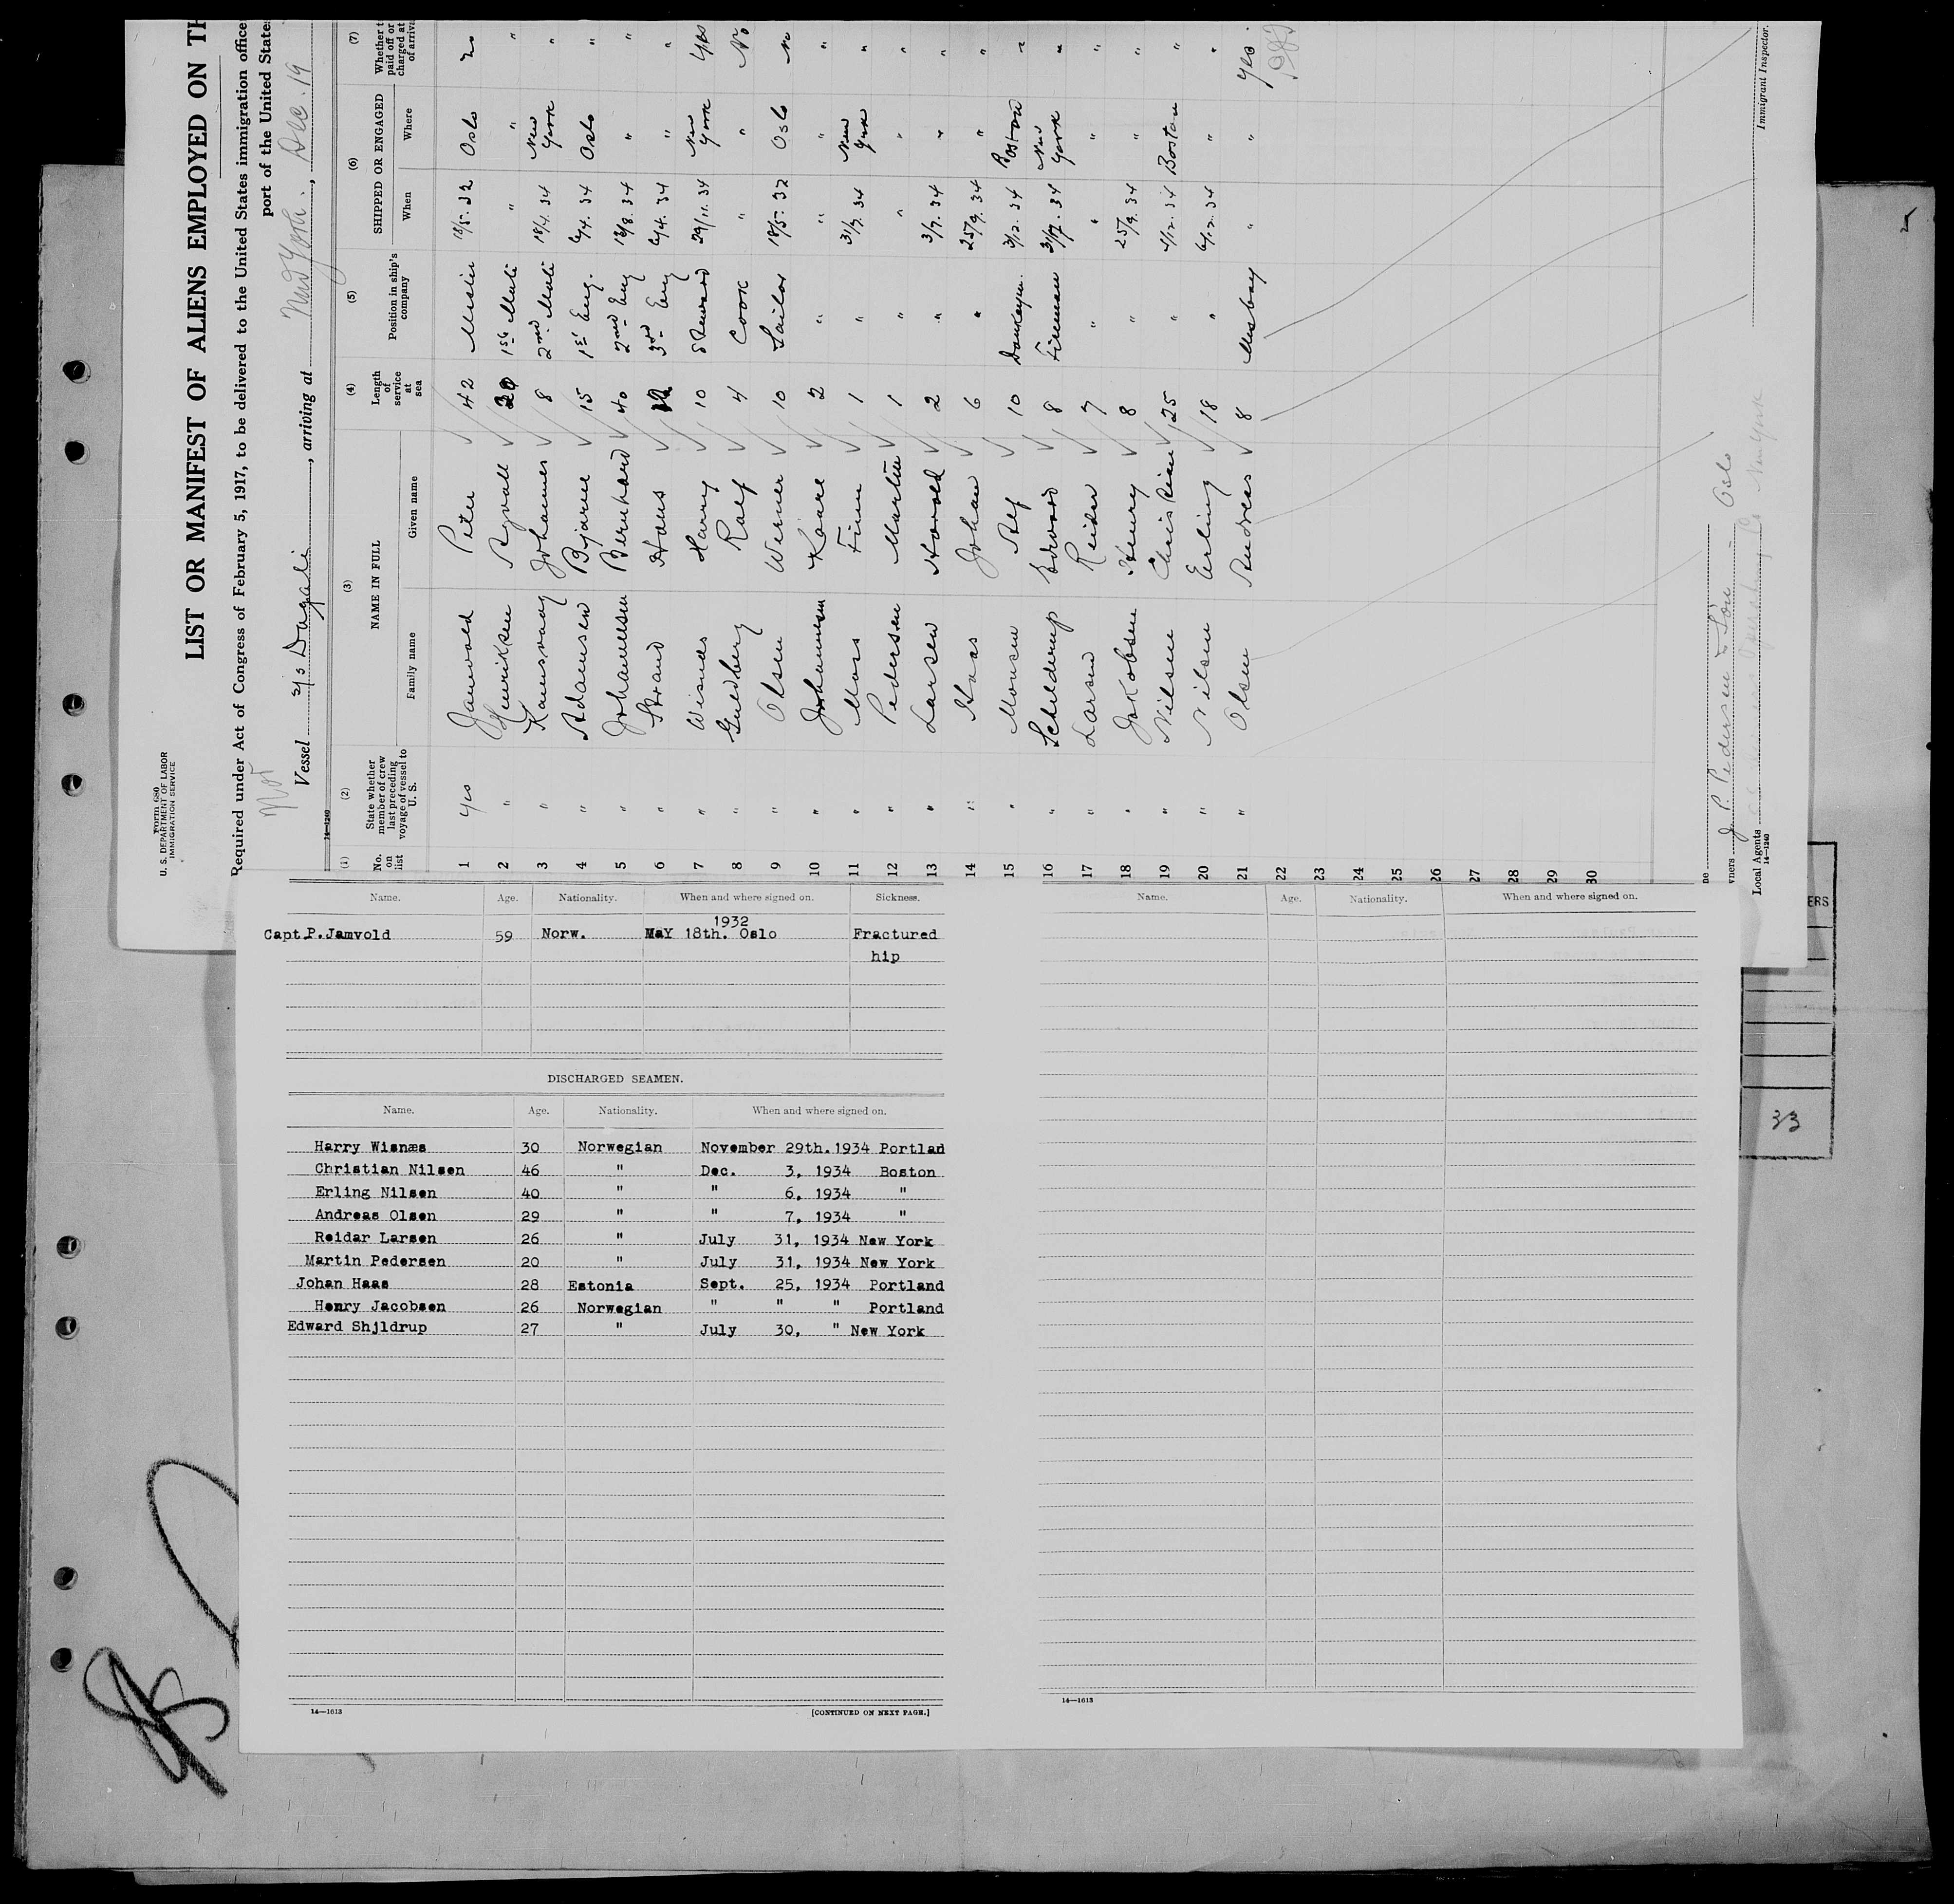 Form 680
U. S. DEPARTMENT OF LABOR
IMMIGRATION SERVICE
LIST OR MANIFEST OF ALIENS EMPLOYED ON TH
Required under Act of Congress of February 5, 1917, to be delivered to the United States immigration office
port of the United State
Vessel s/s Dagali, arriving at New York, Dec. 19
14-1240
(1) (2) (3) (4) (5) (6) (7)
No. on list State whether member of crew last preceding voyage of vessel to U. S. NAME IN FULL Length of service at sea Position in ship's company SHIPPED OR ENGAGED Whether t paid off or charged at of arriva
Family name Given name When Where
1 Yes Jamvold Peter 42 Master 18/5. 32 Oslo No
2 " Henriksen Ragvall 1st Mate " " "
3 " Ramsvaag Johannes 8 2nd Mate 18/4. 34 New York "
4 " Adamsen Bjarne 15 1st Eng. 6/4. 34 Oslo "
5 " Johannessen Bernhard 40 2nd Eng 13/8. 34 " "
6 " Strand Hans 3rd Eng 6/4. 34 " "
7 " Wisnes Harry 10 Steward 29/11. 34 New York Yes
8 " Guldberg Ralf 4 Cook " " No
9 " Olsen Werner 10 Sailor 18/5. 32 Oslo No
10 " Johannesen Kaare 2 " " " "
11 " Moss Finn 1 " 31/7. 34 New York "
12 " Pedersen Martin 1 " " " "
13 " Larsen Harald 2 " 3/7. 34 " "
14 " Haas Johan 6 " 25/9. 34 " "
15 " Monsen Alf 10 Donkeym. 3/12. 34 Boston "
16 " Schilderup Edward 8 Fireman 31/7. 34 New York "
17 " Larsen Reidar 7 " " " "
18 " Jakobsen Henry 8 " 25/9. 34 " "
19 " Nilsen Christian 25 " 4/12. 34 Boston "
20 " Nilsen Erling 18 " 6/12. 34 " "
21 " Olsen Andreas 8 Messboy " " Yes.
22
23
24
25
26
27
28
29
30
wners J. P. Pedersen & Søn Oslo
Local Agents New York
14-1240
Immigrant Inspector.
ERS
33
Name. Age. Nationality. When and where signed on. Sickness.
Capt.P.Jamvold 59 Norw. MaY 18th. 1932 Oslo Fractured
hip
DISCHARGED SEAMEN.
Name. Age. Nationality. When and where signed on.
Harry Wisnæs 30 Norwegian November 29th.1934 Portlan
Christian Nilsen 46 " Dec. 3, 1934 Boston
Erling Nilsen 40 " " 6, 1934 "
Andreas Olsen 29 " " 7, 1934 "
Reidar Larsen 26 " July 31, 1934 New York
Martin Pedersen 20 " July 31, 1934 New York
Johan Haas 28 Estonia Sept. 25, 1934 Portland
Henry Jacobsen 26 Norwegian " " " Portland
Edward Shjldrup 27 " July 30, " New York
14—1613
[CONTINUED ON NEXT PAGE.]
Name. Age. Nationality. When and where signed on.
14—1613